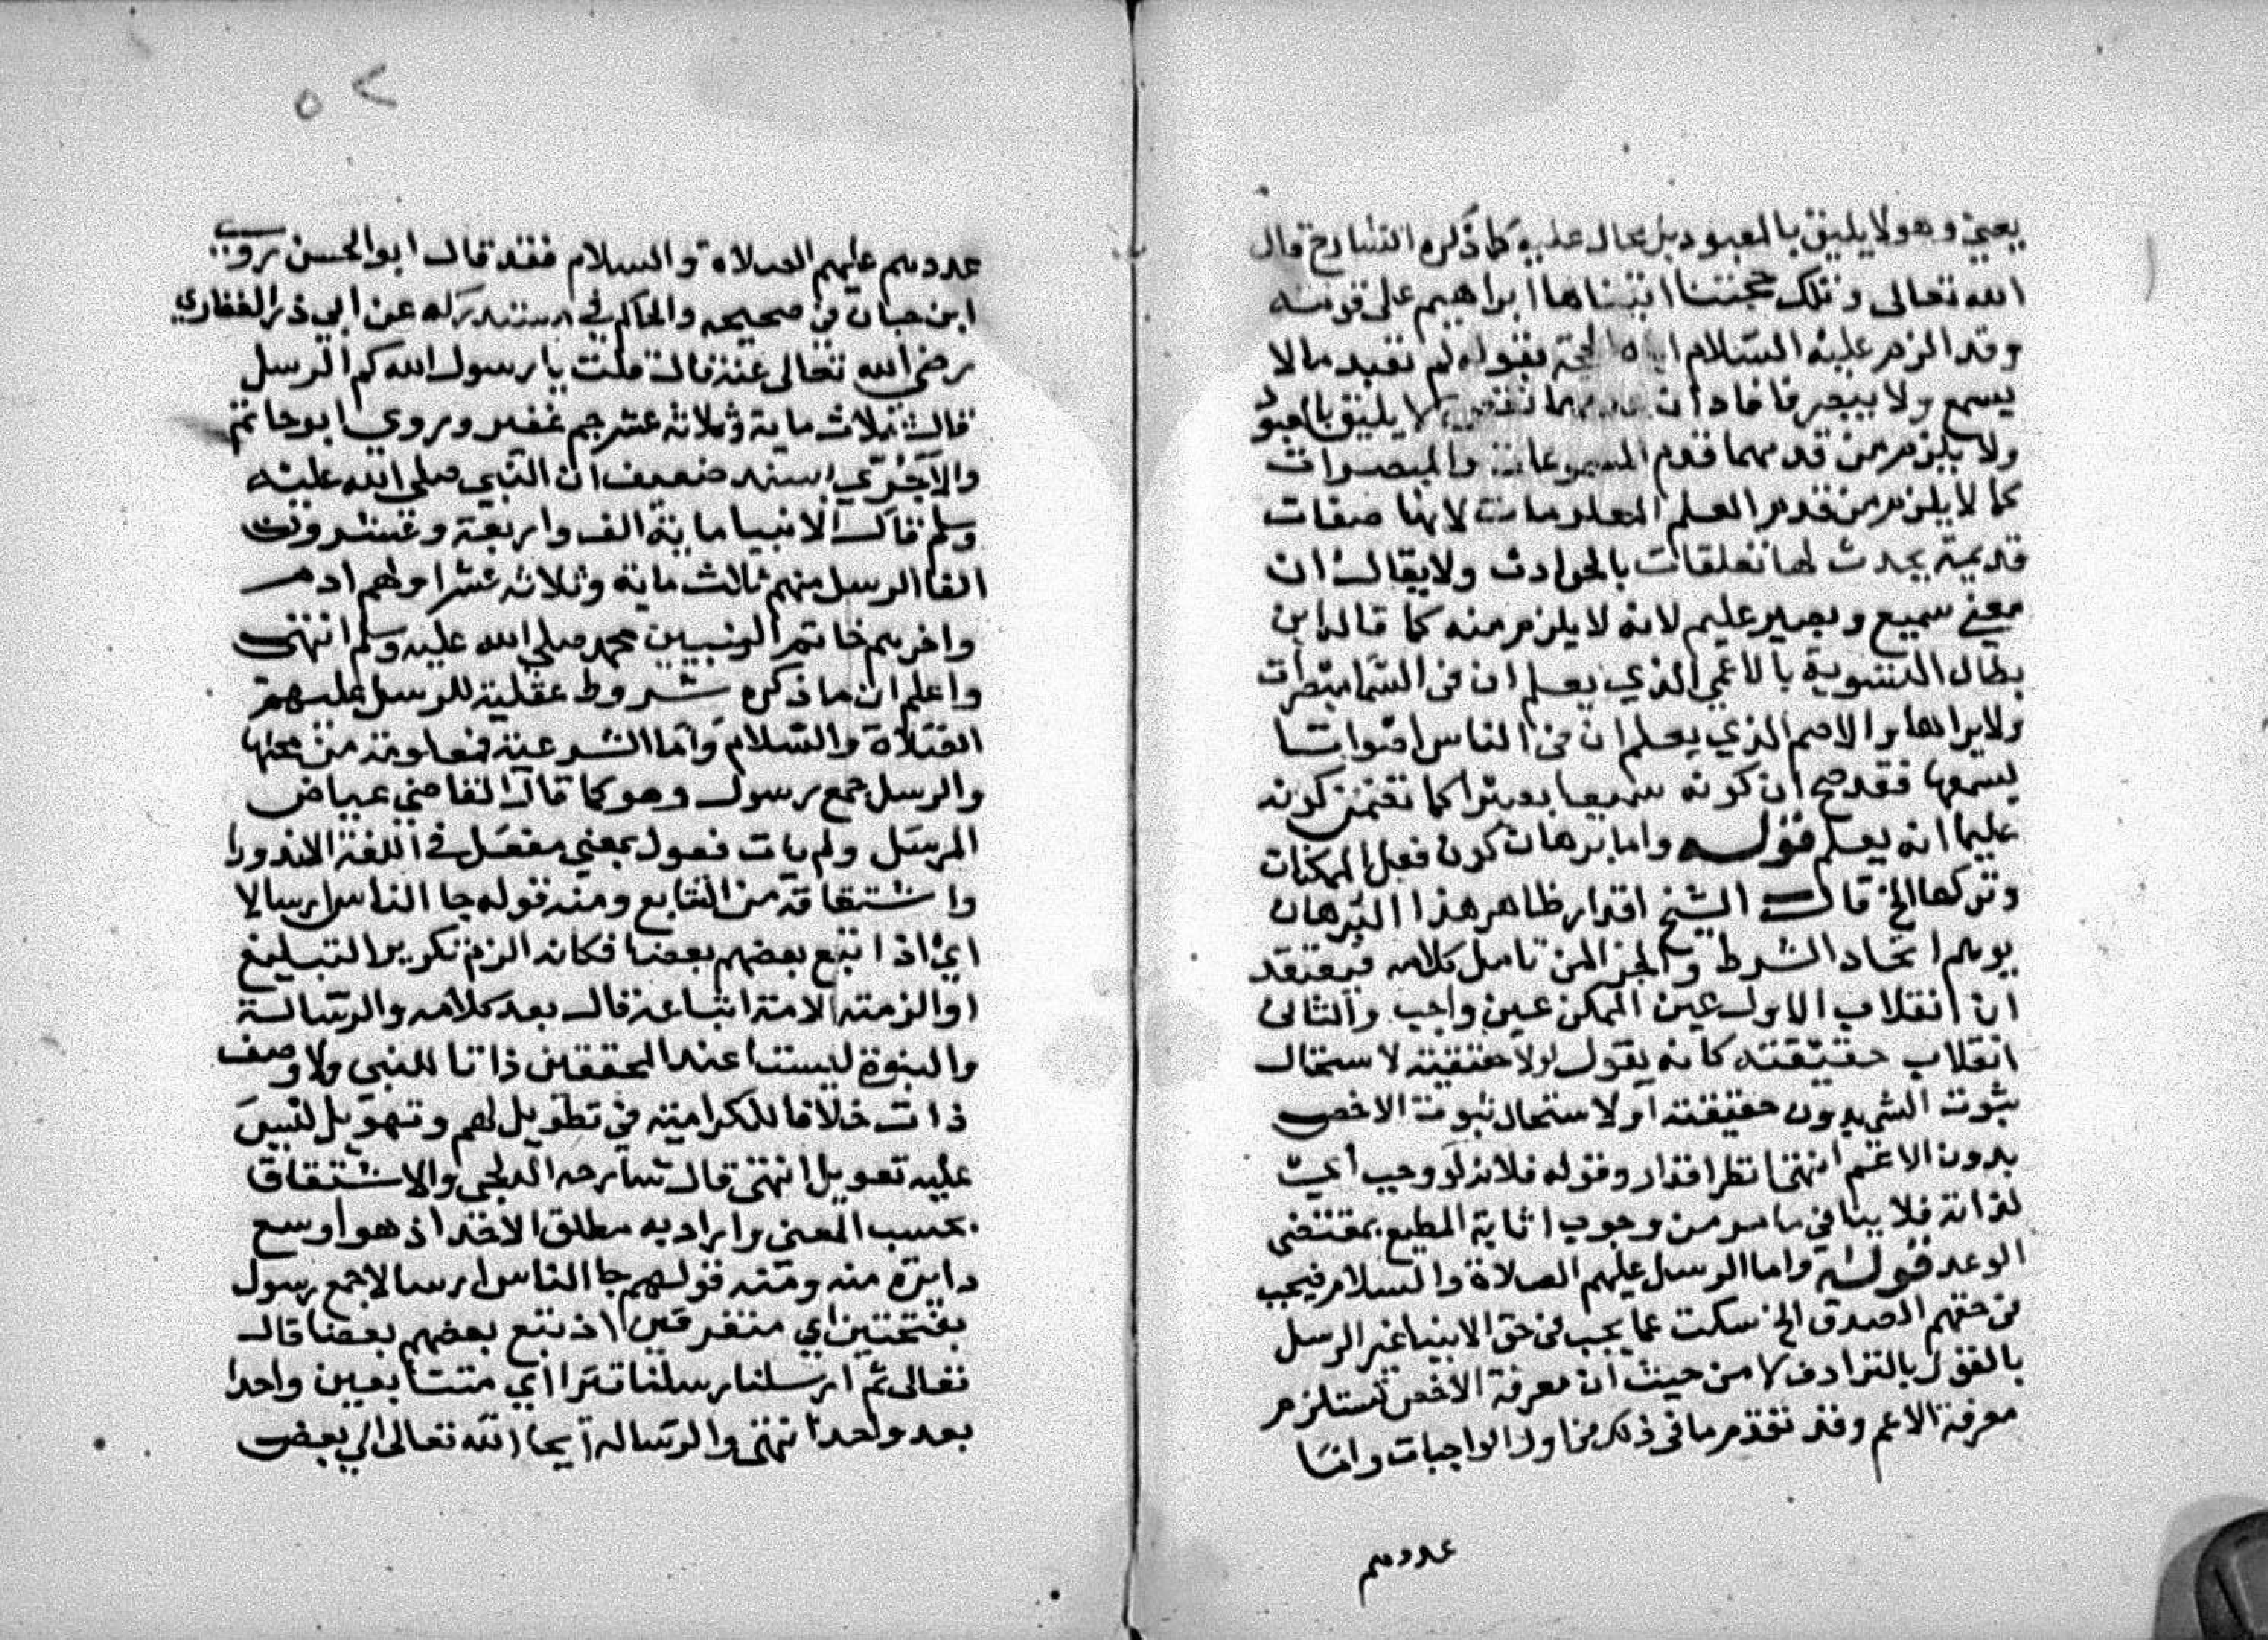 يعني وهو لا يليق بالمعبود بل محال عليه كما ذكره الشارح قال
الله تعالى وتلك حجتنا اتيناها ابراهيم على قومه
وقد الزم عليه السلام اباه الحجة بقوله لم تعبد مالا
يسمع ولا يبصر فافاد ان عدمهما نقص لا يليق بالمعبود
ولا يلزم من قدمهما قدم المسموعات والمبصرات
كما لا يلزم من قدم العلم المعلومات لانها صفات
قديمة يحدث لها تعلقات بالحوادث ولا يقال ان
معنى سميع وبصير عليم لانه لا يلزم منه كما قال ابن
بطال التسوية بالاعمى الذي يعلم ان في السما
ولا يراها والاصم الذي يعلم ان في الناس اصواتا
يسمعها فقد صح ان كونه سميعا بصيرا كما تضمن كونه
عليما انه يعلم قوله واما برهان كون فعل الممكنات
وتركها الخ قال الشيخ اقدار ظاهر هذا البرهان
يوهم اتحاد الشرط والجزا لمن تامل كلامه فيعتقد
ان انقلاب الاول عين الممكن عين واجب والثاني
انقلاب حقيقته كانه يقول لولا حقيقته لاستحال
ثبوت الشي بدون حقيقته او لاستحال ثبوت الاخص
بدون الاعم انتهى نظر اقدار وقوله فلانه لو وجب أي
لذاته فلا ينافي ما مر من وجوب اثابة المطيع بمقتضى
الوعد قوله واما الرسل عليهم الصلاة والسلام فيجب
في حقهم الصدق الخ سكت عما يجب في حق الانبيا غير الرسل
بالقول بالترادف لا من حيث ان معرفة الاخص تستلزم
معرفة الاعم وقد تقدم ما في ذلك من اول الواجبات واما
عددهم
٥٢
عددهم عليهم الصلاة والسلام فقد قال ابو الحسن روى
ابن حبان في صحيحه والحاكم في مستدركه عن ابي ذر الغفاري
رضي الله تعالى عنه قال قلت يا رسول الله كم الرسل
قال ثلاث ماية وثلاثة عشر جم غفير وروي ابو حاتم
والآجُرّي بسند ضعيف ان النبي صلى الله عليه
وسلم قال الانبيا ماية الف واربعة وعشرون
الفا الرسل منهم ثالث ماية وثلاثة عشر اولهم ادم
واخرهم خاتم النبيين محمد صلى الله عليه وسلم انتهى
واعلم ان ما ذكره شروط عقلية للرسل عليهم
الصلاة والسلام واما الشرعية فمعلومة من محلها
والرسل جمع رسول وهو كما قال القاضي عياض
المرسل ولم يات فعول بمعنى مفعل في اللغة الا ندورا
واشتقاقه من التتابع ومنه قوله جا الناس ارسالا
اي اذا اتبع بعضهم بعضا فكانه الزم تكرير التبليغ
او الزمت الامة اتباعه قال بعد كلامه والرسالة
والنبوة ليستا عند المحققين ذاتا للنبي ولا وصف
ذات خلافا للكرامية في تطويل لهم وتهويل ليس
عليه تعويل انتهى قال شارحه الدلجي والاشتقاق
بحسب المعنى وارادبه مطلق الاخذ اذ هو اوسع
دايرة منه ومنه قولهم جا الناس ارسالا جمع رسول
بفتحتين اي متفرقين اذ تبع بعضهم بعضا قال
تعالى ثم ارسلنا رسلنا تترا أي متتابعين واحدا
بعد واحد انتهى والرسالة ايحا الله تعالى الي بعض